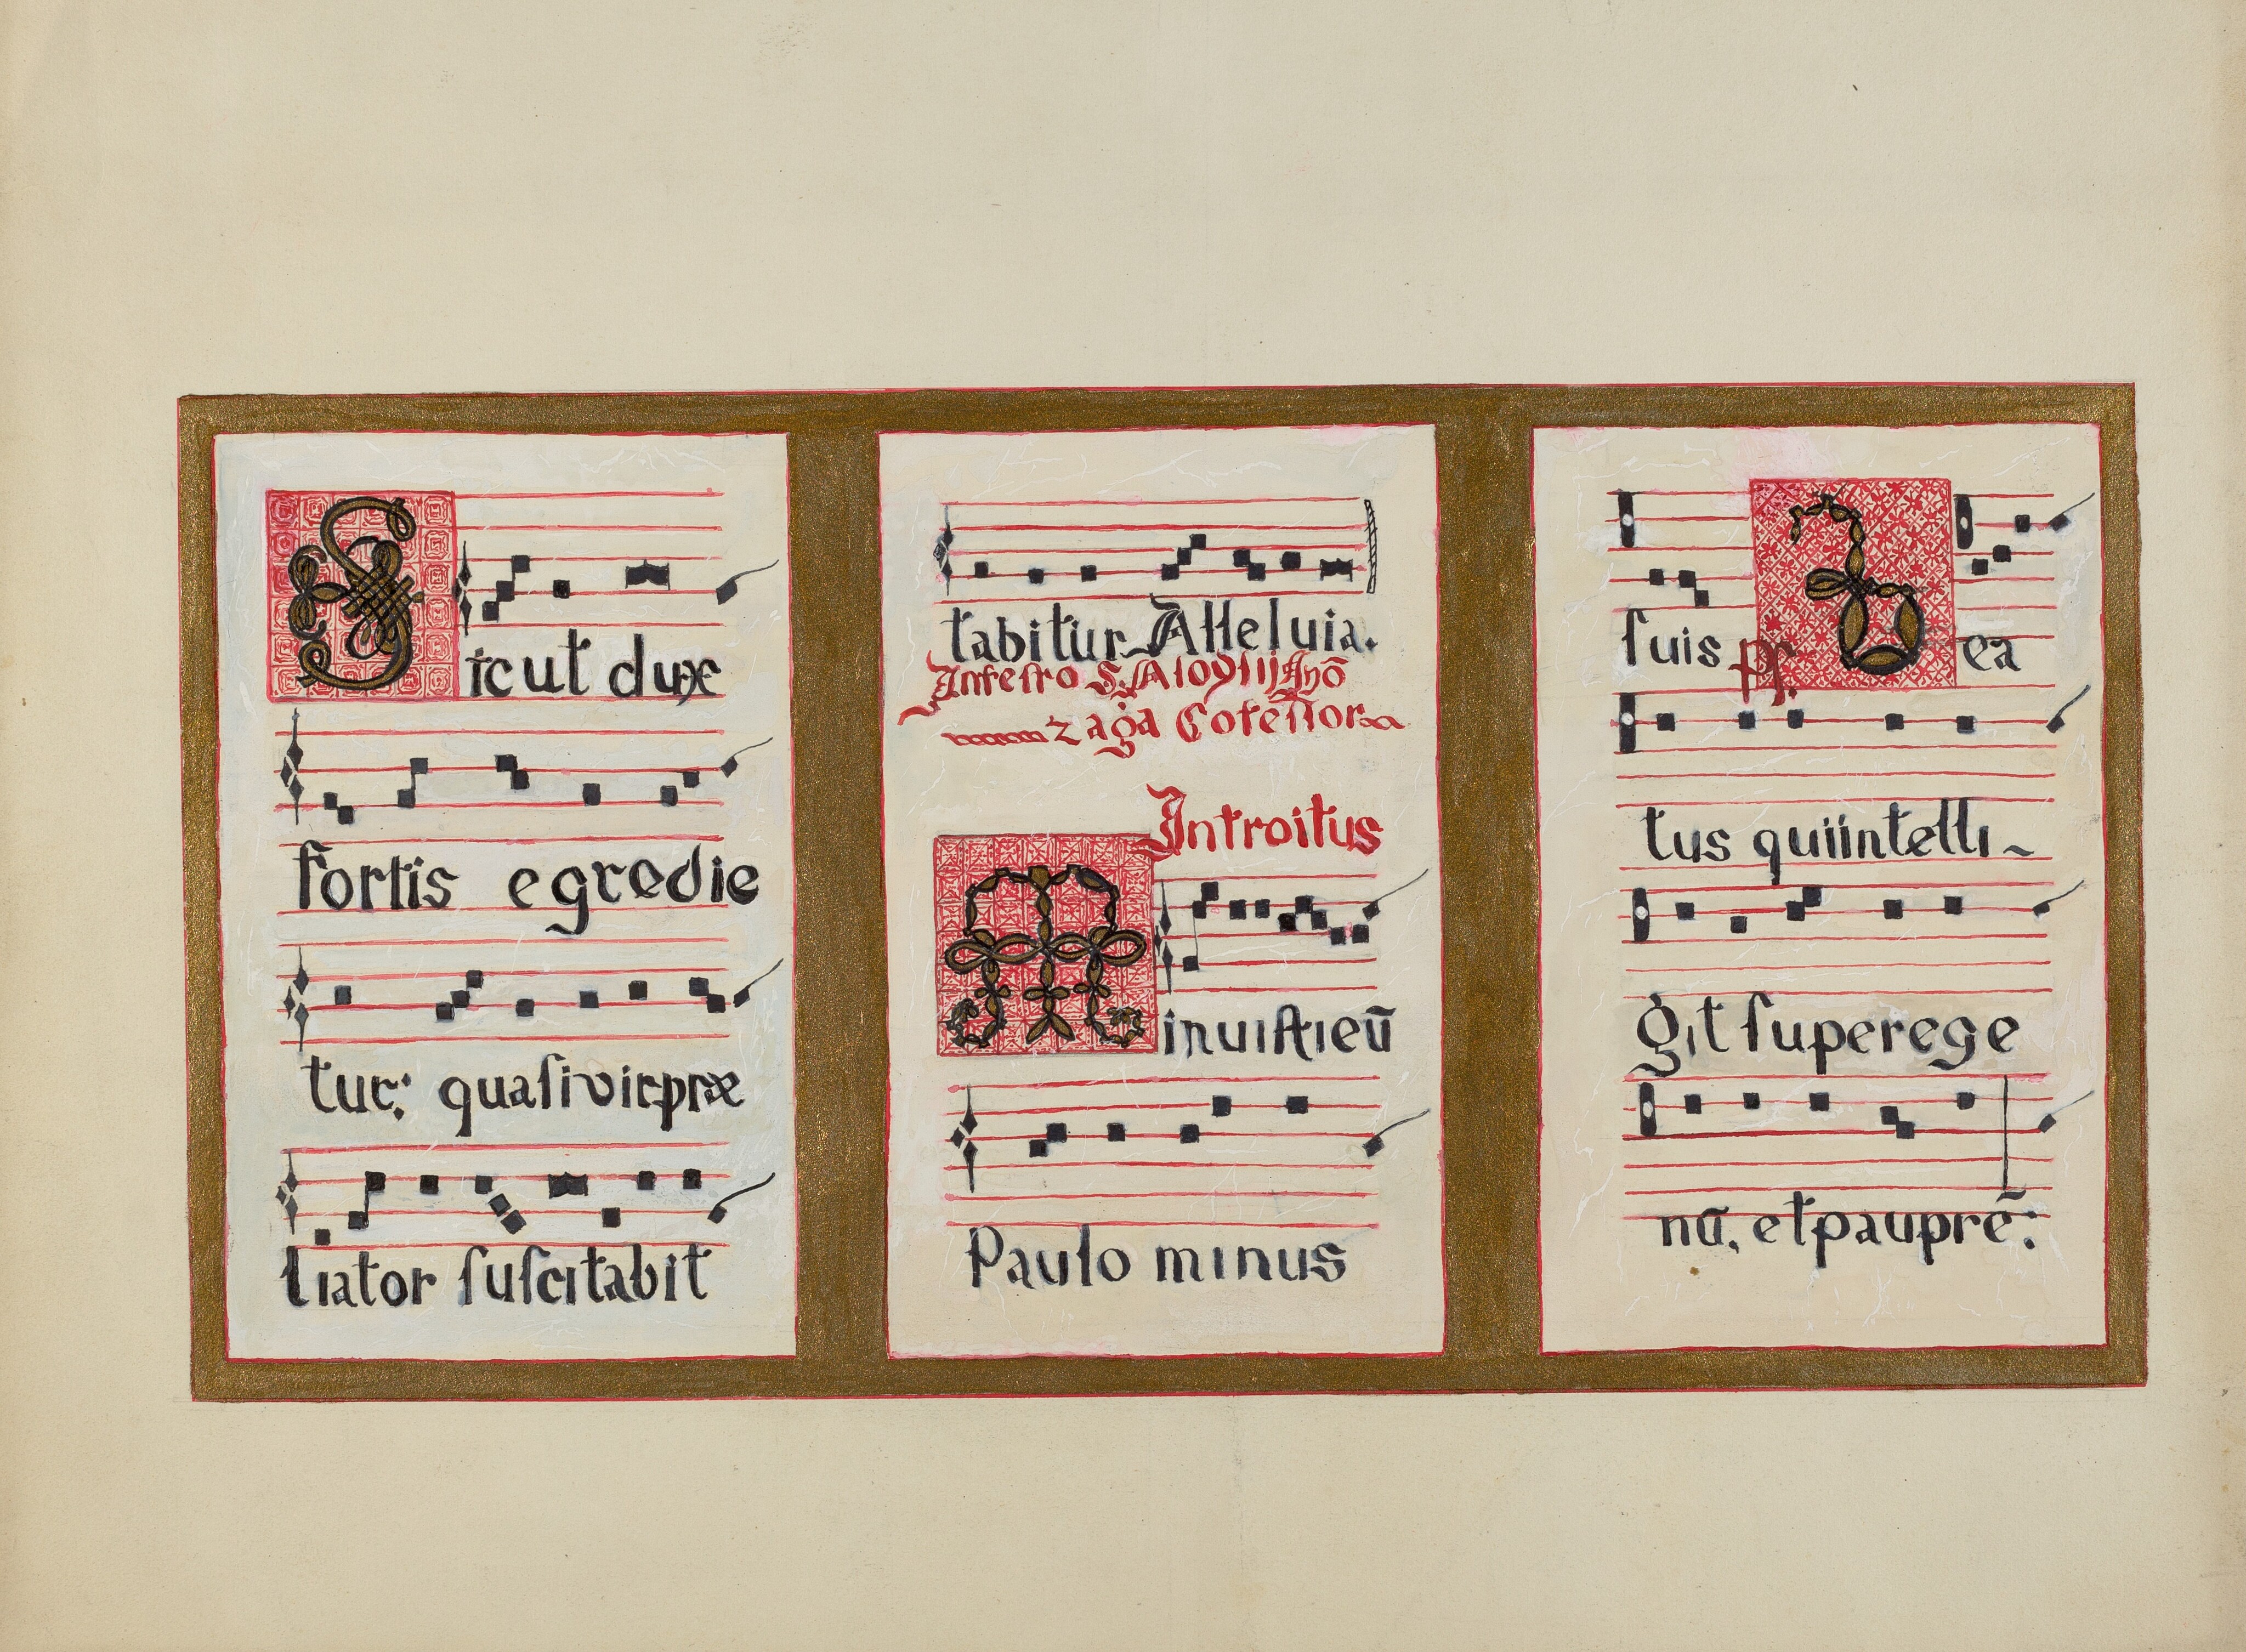 Sicut dux
fortis egredie
tur: quasi vir præ
liator suscitabit
tabitur Alleluia.
In festo S. Aloysii Gõ
zaga Cofessor
Introitus
Minuisti eū
Paulo minus
suis ps. Bea
tus qui intelli-
git super ege
nū, et pauprē: